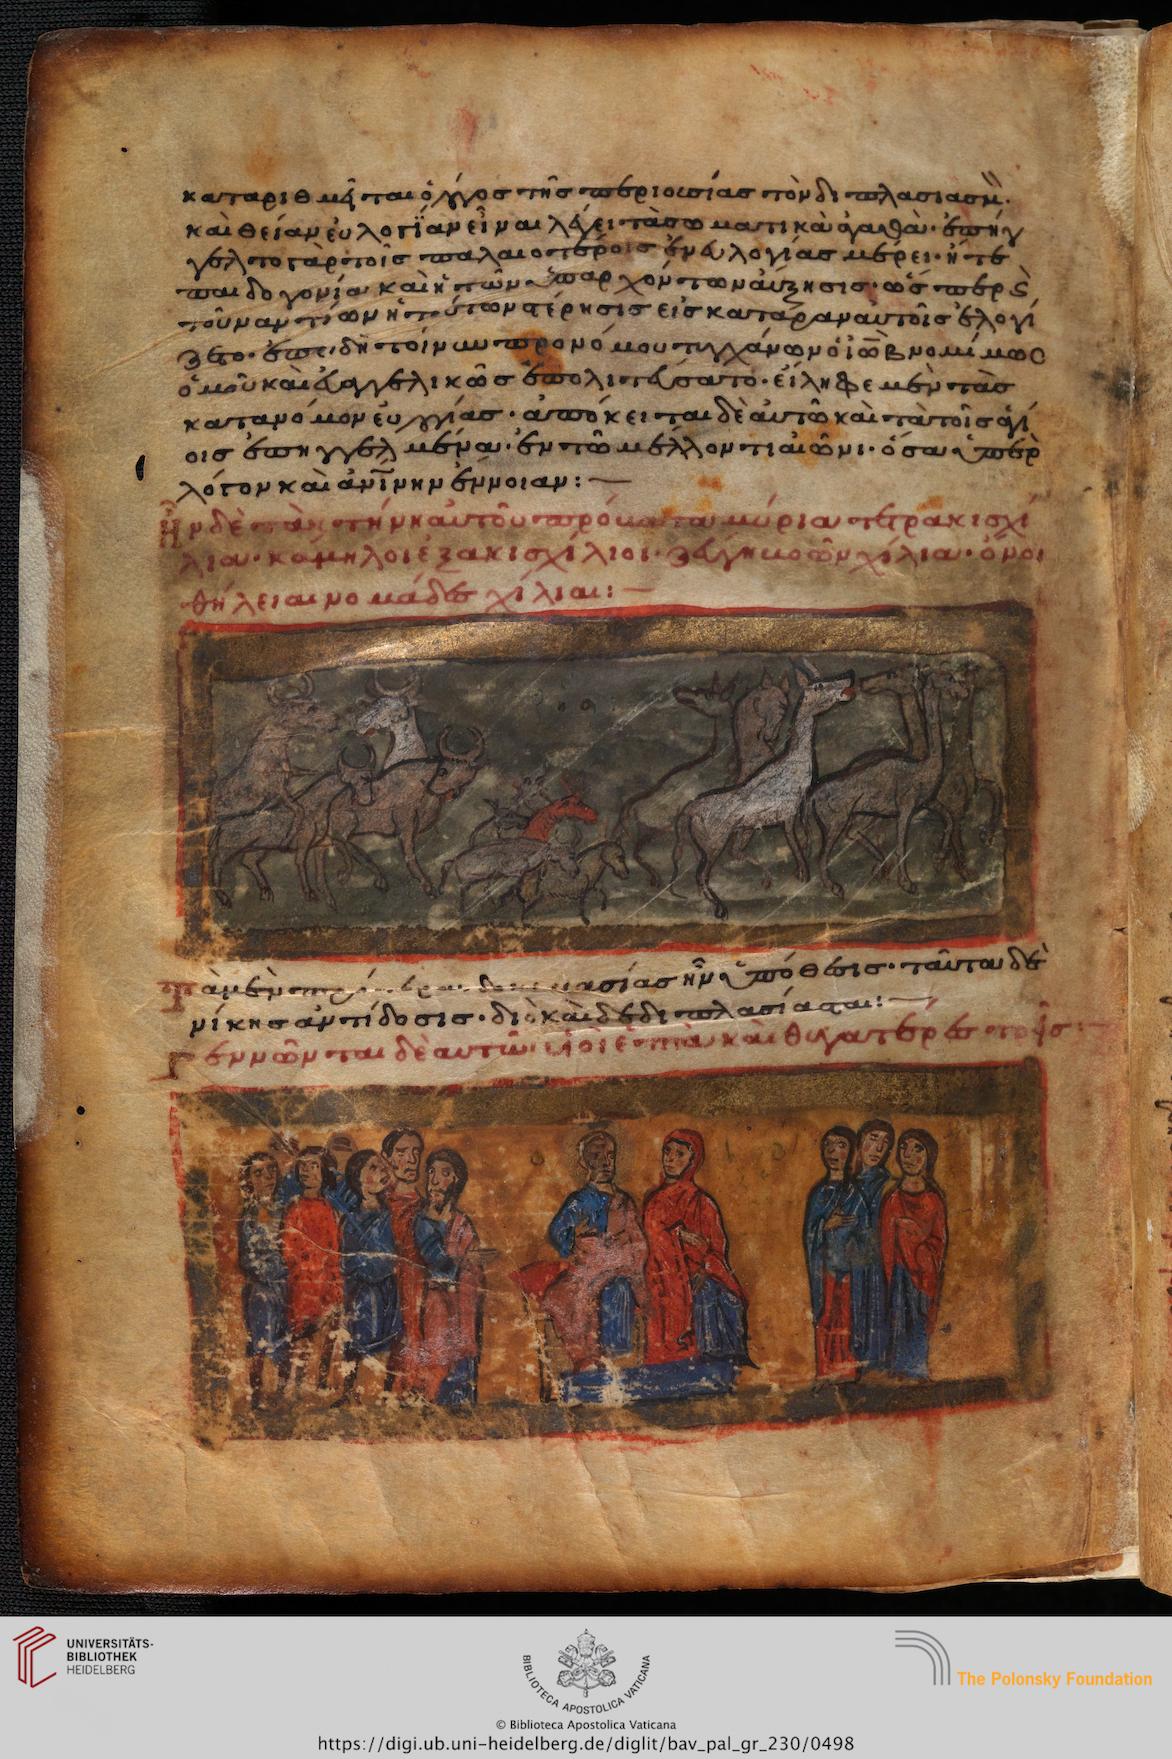 καταριθμεῖται ὁ λόγος τῆς περιουσίας τὸν διπλασιασμόν·
καὶ θείαν εὐλογίαν εἶναι λέγει τὰ σωματικὰ ἀγαθά· ἐπήγ
γελτο γὰρ τοῖς παλαιοτέροις ἐν εὐλογίας μέρει· ἥ τε
παιδογονία καὶ ἡ τῶν ὑπαρχόντων αὔξησις· ὡς περ
τοὐναντίον ἡ τούτων στέρησις εἰς κατάραν αὐτοῖς ἐλογί
ζετο· ἐπειδὴ τοίνυν πρὸ νόμου τυγχάνων ὁ ἰὼβ νομίμως
ὁμοῦ καὶ εὐαγγελικῶς ἐπολιτεύσατο· εἴληφε μὲν τὰς
κατὰ νόμον εὐλογίας· ἀπόκειται δὲ αὐτῶ καὶ τὰ τοῖς ἁγί
οις ἐπηγγελμένα· ἐν τῶ μέλλοντι αἰῶνι· ὅσα ὑπὲρ
λόγον καὶ ἀνθρωπίνην ἔννοιαν:
Ἦν δὲ τὰ κτήνη αὐτοῦ πρόβατα μύρια τετρακισχί
λια· κάμηλοι ἑξακισχίλιοι· ζεύγη βοῶν χίλια· ὄνοι
θήλειαι νομάδες χίλιαι:
Τὰ μὲν δοκιμασίας ἦν ὑπόθεσις· ταῦτα δὲ
νίκης ἀντίδοσις· διὸ καὶ δεδιπλασίασται:
Γεννῶνται δὲ αὐτῶ υἱοὶ ἑπτὰ καὶ θυγατέρες τρεῖς:
UNIVERSITÄTS-
BIBLIOTHEK
HEIDELBERG
BIBLIOTECA APOSTOLICA VATICANA
The Polonsky Foundation
© Biblioteca Apostolica Vaticana
https://digi.ub.uni-heidelberg.de/diglit/bav_pal_gr_230/0498